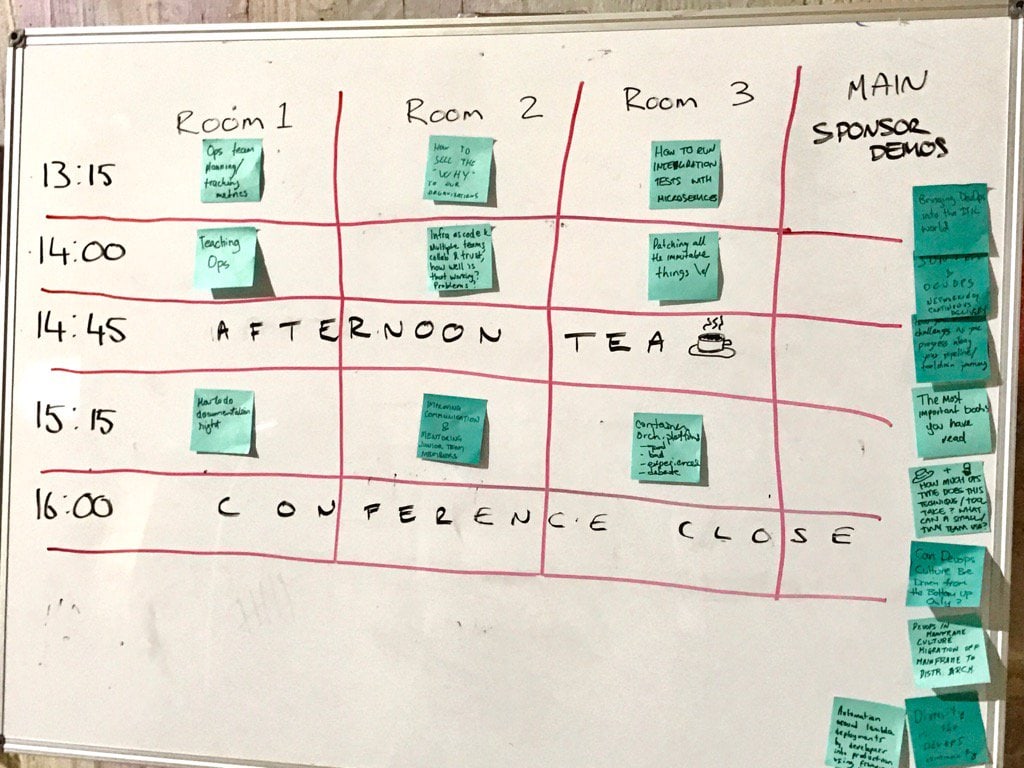 Room 1
Room 2
Room 3
MAIN
SPONSOR
DEMOS
13:15
Ops team
planning/
tracking
metrics
HOW TO
SELL THE
"WHY"
TO OUR
ORGANISATIONS
HOW TO RUN
INTEGRATION
TESTS WITH
MICROSERVICES
14:00
Teaching
Ops
Infra as code &
Multiple teams
collab & trust,
how well is
that working?
Problems?
Patching all
the immutable
things \o/
14:45
AFTERNOON TEA
15:15
How to do
documentation
right
IMPROVING
COMMUNICATION
&
MENTORING
JUNIOR TEAM
MEMBERS
Container
Orch. platforms
- good
- bad
- experiences
- debate
16:00
CONFERENCE CLOSE
Bringing DevOps
into the
world
DEVOPS
NETWORKING
CONTINUOUS
DELIVERY
challenges as you
progress along
your pipeline/
toolchain journey
The Most
important books
you have
read
+
HOW MUCH OPS
TIME DOES THIS
TECHNIQUE/TOOL
TAKE? WHAT
CAN A SMALL/
TINY TEAM USE?
Can Devops
Culture Be
Driven from
the Bottom Up
Only?
DEVOPS IN
MAINFRAME
CULTURE
MIGRATION OFF
MAINFRAME TO
DISTR. ARCH
Automation
around lambda
deployments
by developers
into production
using
Diversity
the
devops
community